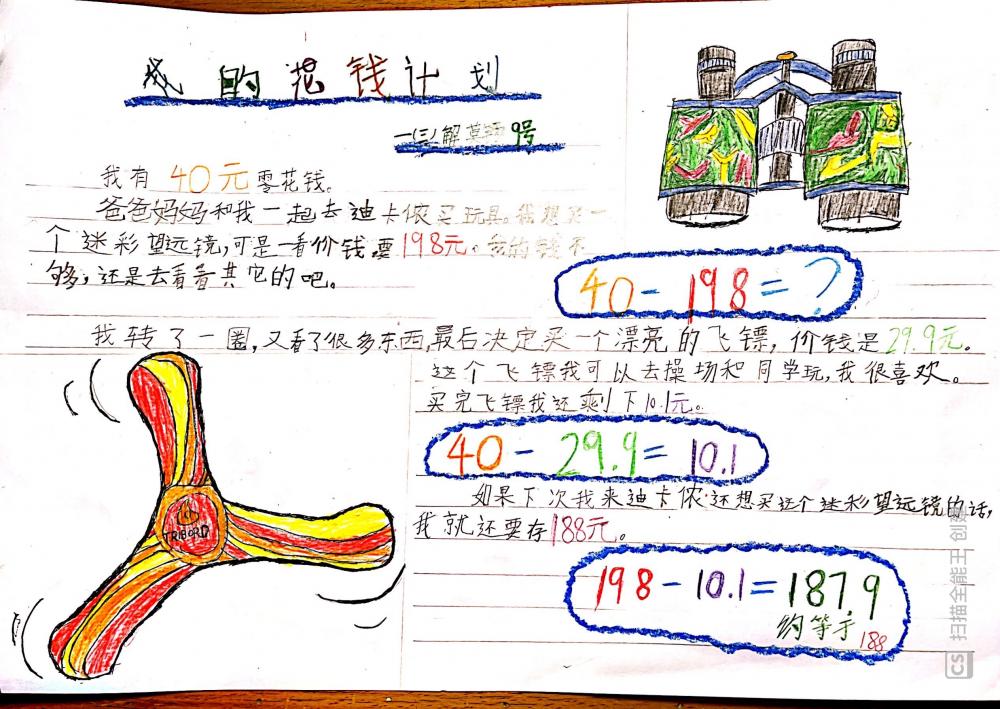 我的花钱计划
一(三)解草 9号
我有40元零花钱。
爸爸妈妈和我一起去迪卡侬买玩具。我想买一
个迷彩望远镜,可是一看价钱要198元。我的钱不
够,还是去看看其它的吧。
40-198=?
我转了一圈,又看了很多东西,最后决定买一个漂亮的飞镖,价钱是29.9元。
这个飞镖我可以去操场和同学玩,我很喜欢。
买完飞镖我还剩下10.1元。
40-29.9=10.1
如果下次我来迪卡侬还想买这个迷彩望远镜的话,
我就还要存188元。
198-10.1=187.9
约等于188
TRIBORD
CS 扫描全能王 创建